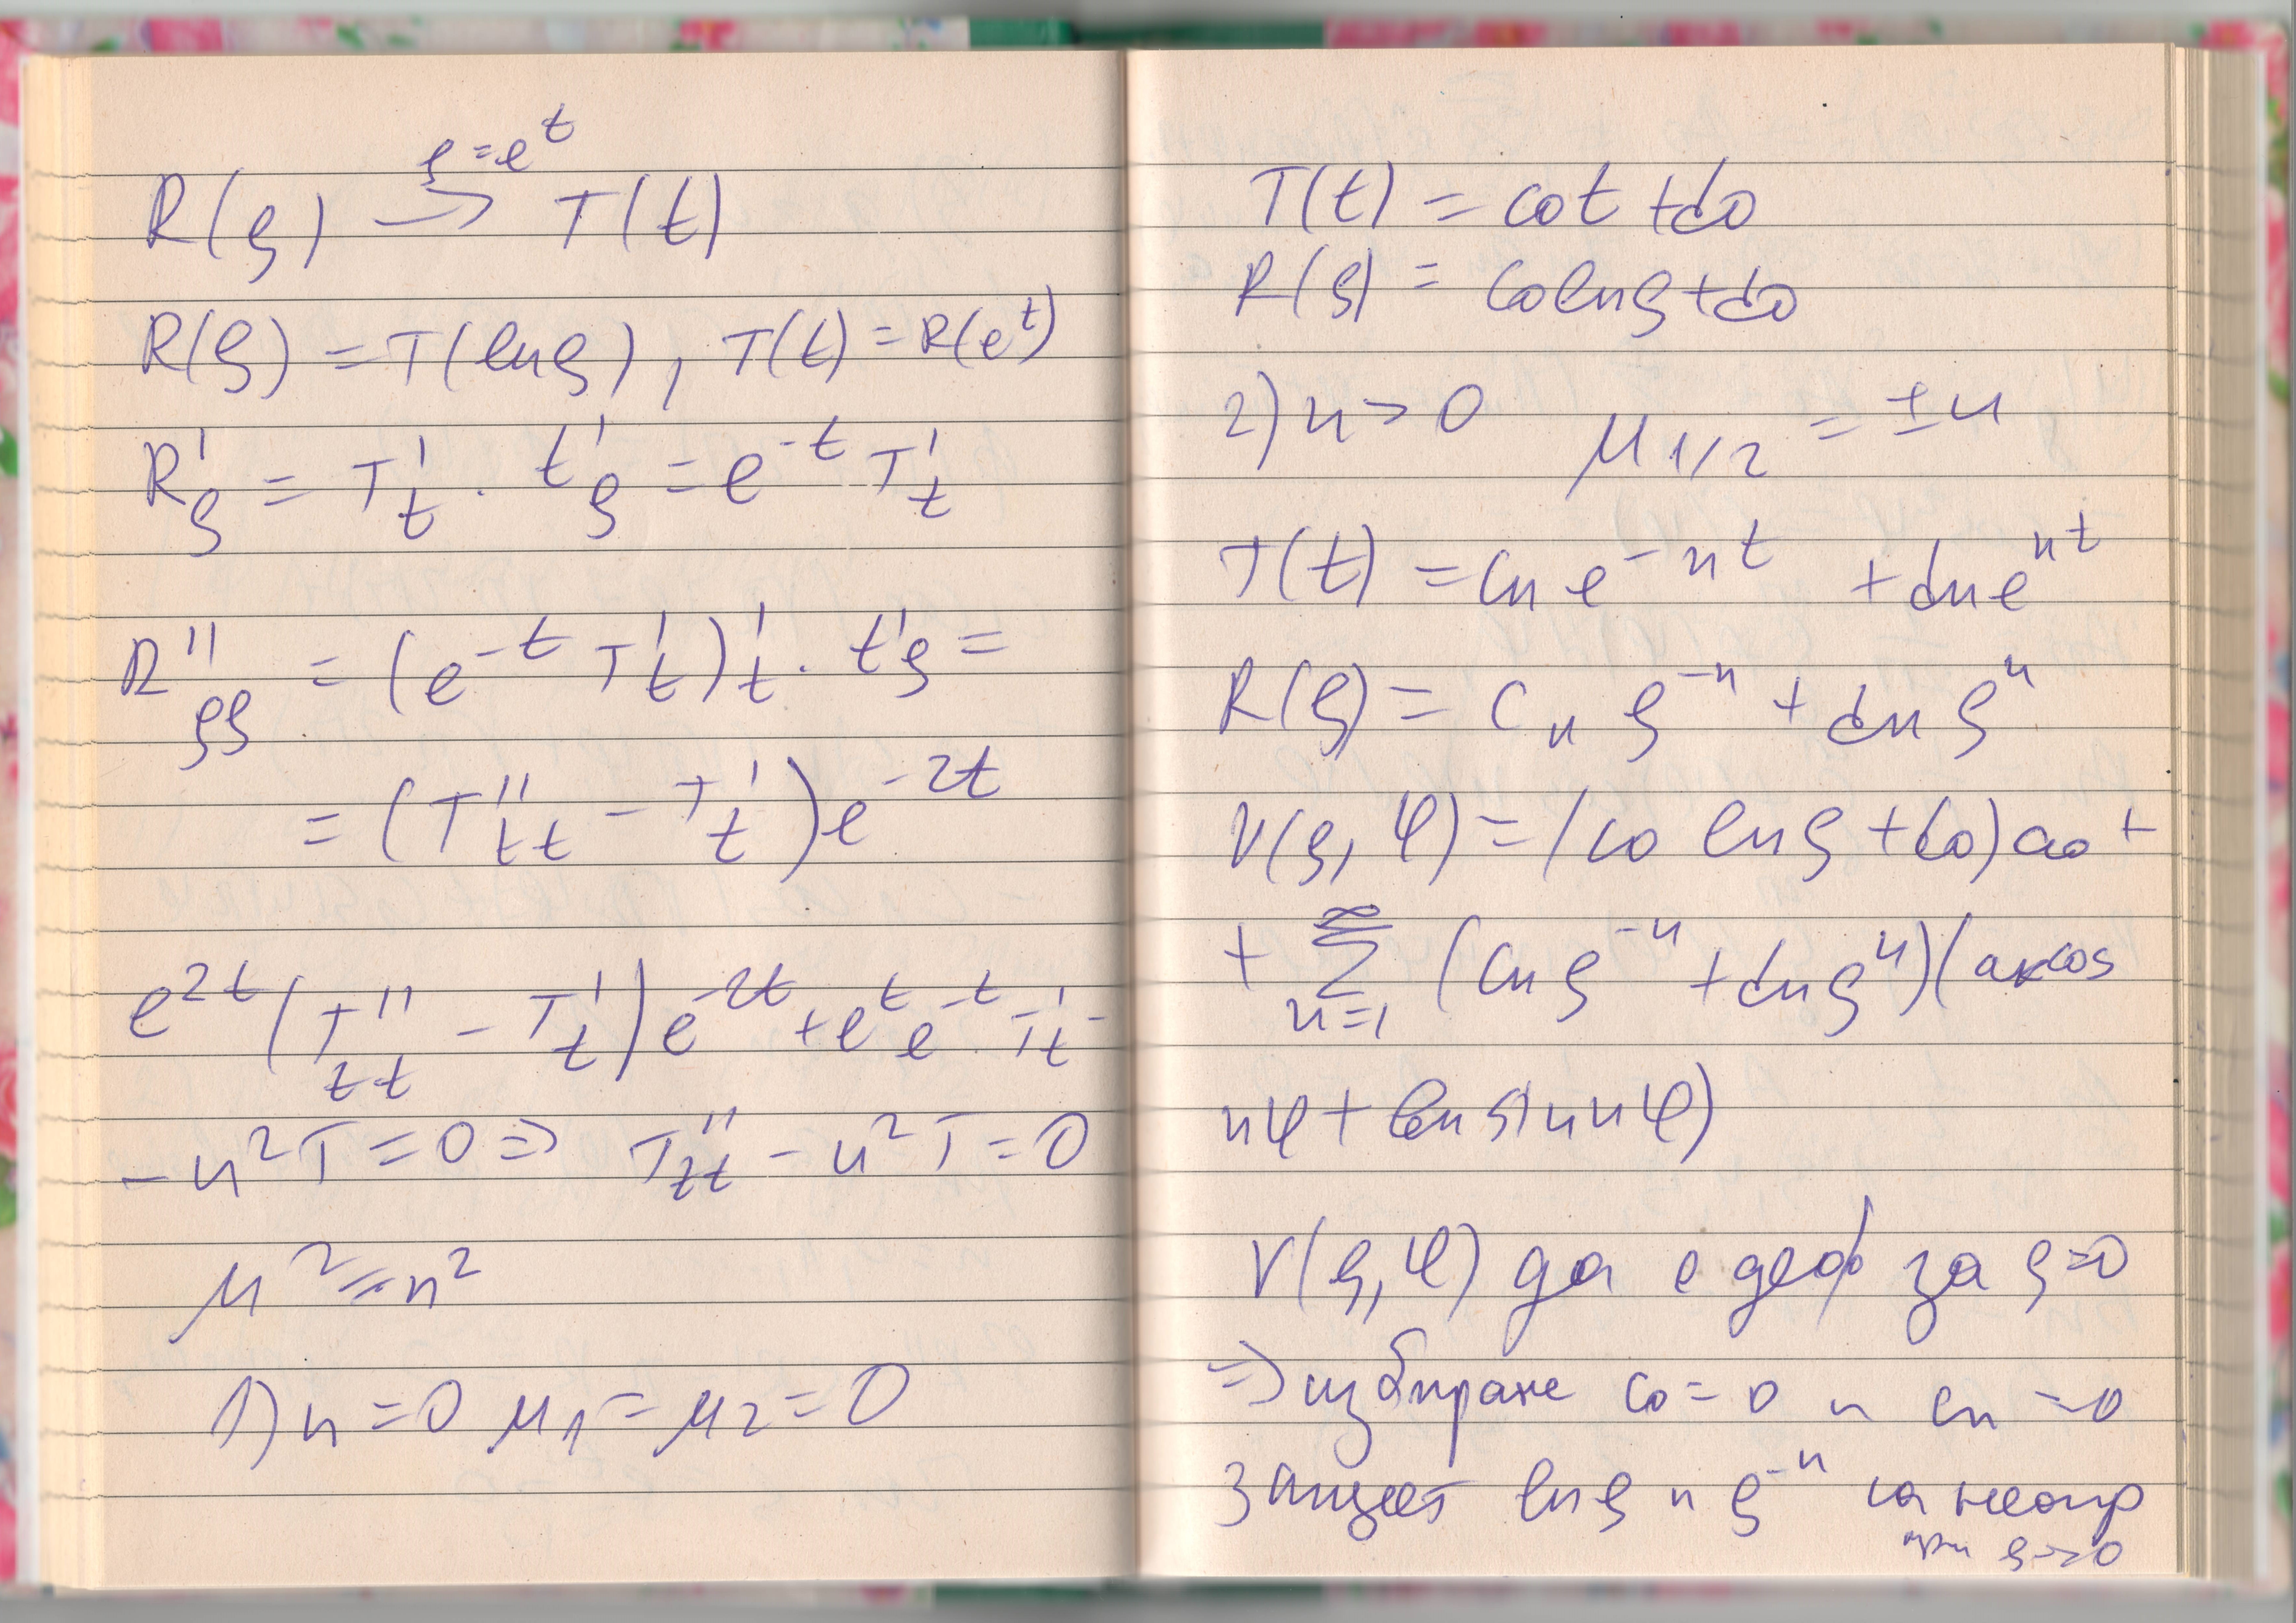 ρ = e^t
R(ρ) → T(t)
R(ρ) = T(lnρ), T(t) = R(e^t)
R'ρ = T't . t'ρ = e^-t T't
R''ρρ = (e^-t T't)'t . t'ρ =
= (T''tt - T't)e^-2t
e^2t(T''tt - T't)e^-2t + e^t e^-t T't -
- n²T = 0 ⇒ T''tt - n²T = 0
μ² = n²
1) n = 0 μ1 = μ2 = 0
T(t) = c0t + d0
R(ρ) = c0lnρ + d0
2) n > 0 μ1/2 = ±n
T(t) = cn e^-nt + dn e^nt
R(ρ) = cn ρ^-n + dn ρ^n
V(ρ, φ) = (c0 lnρ + d0) a0 +
+ ∞Σn=1 (cn ρ^-n + dn ρ^n)(an cos
nφ + bn sin nφ)
V(ρ, φ) да е деф за ρ=0
⇒ избираме c0 = 0 и cn = 0
защот lnρ и ρ^-n са неогр
при ρ→0